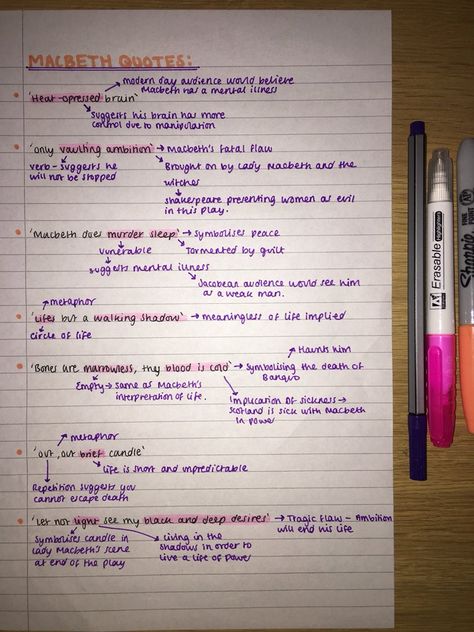 MACBETH QUOTES:
modern day audience would believe
Macbeth has a mental illness
'Heat-opressed brain'
Suggests his brain has more
control due to manipulation
'only vaulting ambition' → Macbeth's fatal flaw
verb - suggests he
will not be stopped
Brought on by Lady Macbeth and the
witches
Shakespeare presenting women as evil
in this play.
'Macbeth does murder sleep' → Symbolises peace
Vunerable
Tormented by guilt
suggests mental illness
Jacobean audience would see him
as a weak man.
metaphor
'Lifes but a walking shadow' → meaningless of life implied
circle of life
Haunts him
'Bones are marrowless, they blood is cold' → Symbolising the death of
Banquo
Empty → same as Macbeth's
interpretation of life.
Implication of sickness →
Scotland is sick with Macbeth
in power
metaphor
'out, out brief candle'
Life is short and unpredictable
Repetition suggests you
cannot escape death
'Let not light see my black and deep desires' → Tragic flaw - Ambition
will end his life
Symbolises candle in
lady Macbeth's scene
at end of the play
Living in the
shadows in order to
live a life of power
Erasable
Sharpie